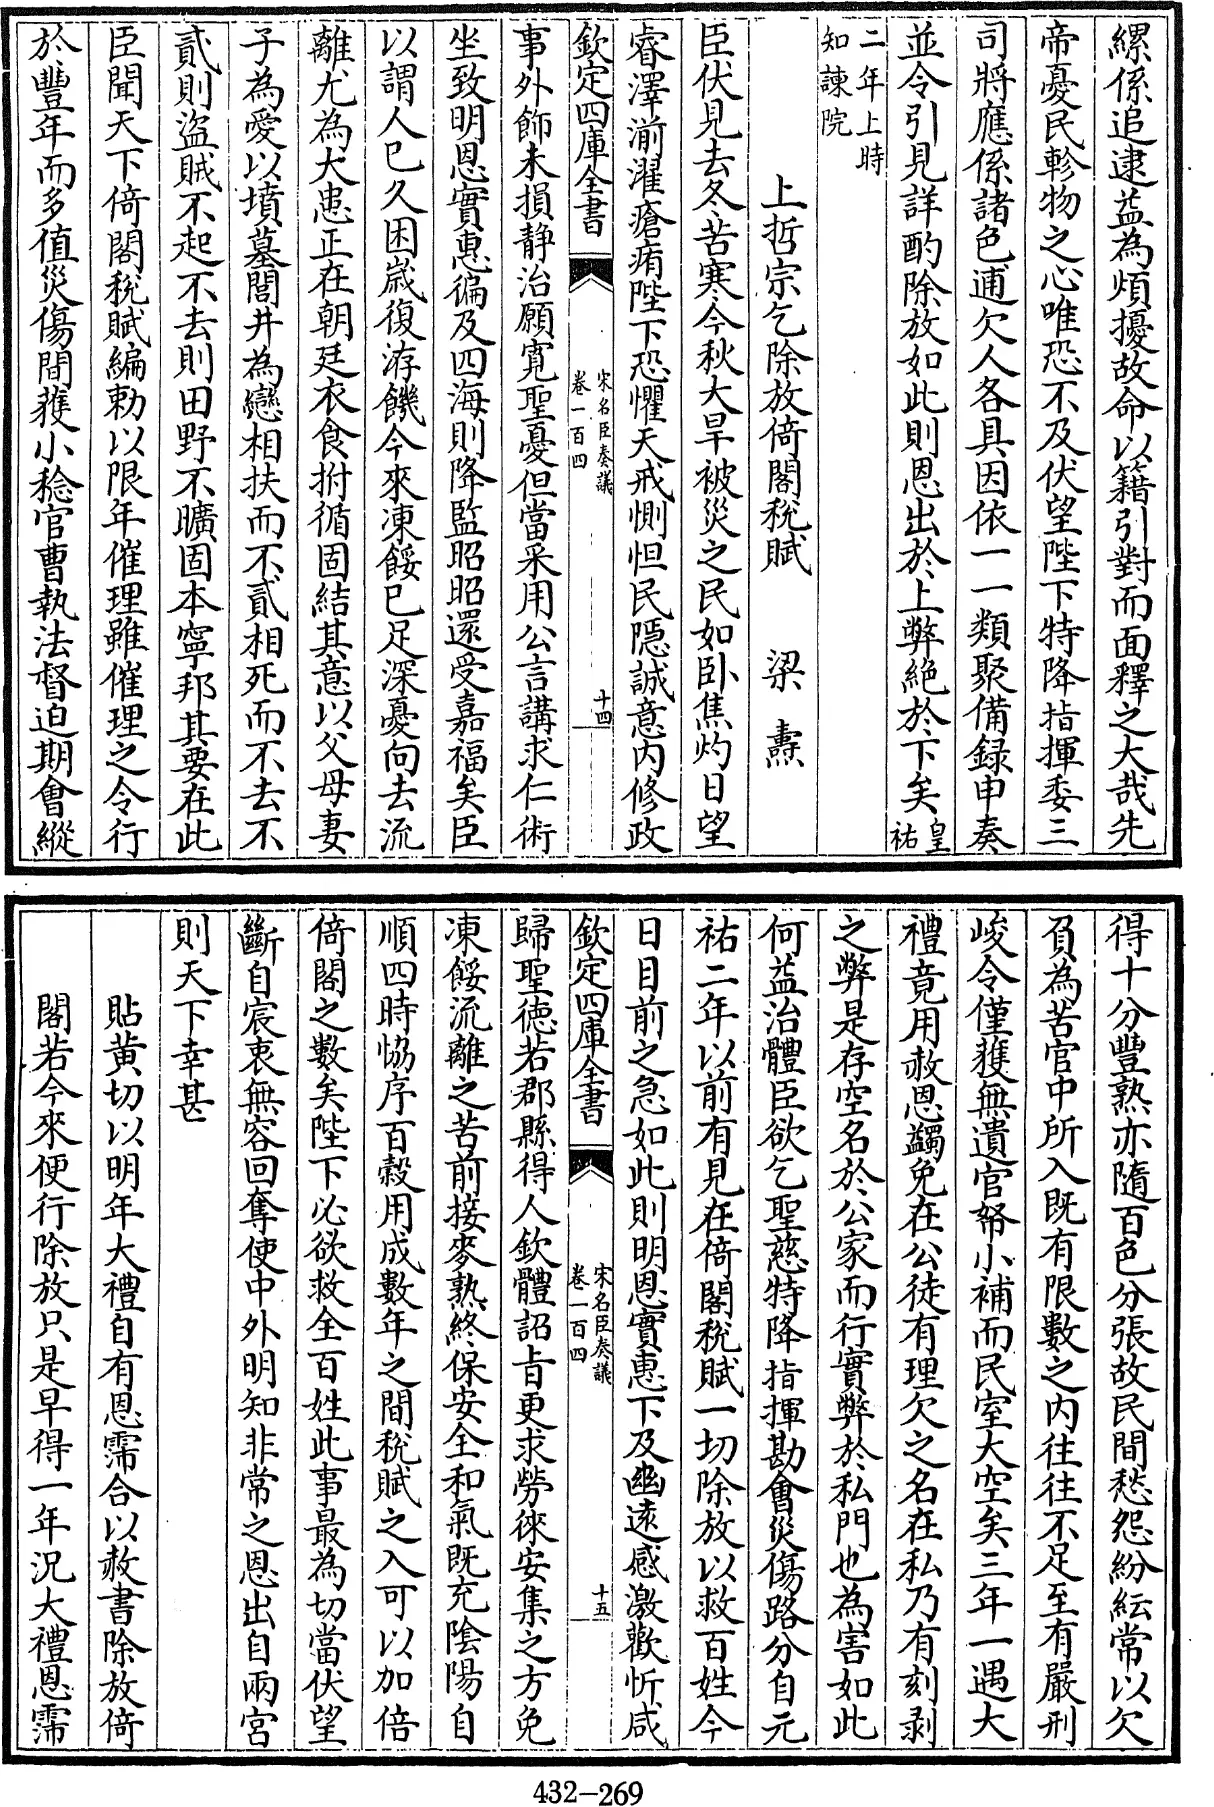 縲係追逮益為煩擾故命以籍引對而面釋之大哉先
帝憂民軫物之心唯恐不及伏望陛下特降指揮委三
司將應係諸色逋欠人各具因依一一類聚備録申奏
並令引見詳酌除放如此則恩出於上弊絶於下矣皇祐
二年上時知諫院
上哲宗乞除放倚閣稅賦　梁燾
臣伏見去冬苦寒今秋大旱被災之民如卧焦灼日望
睿澤湔濯瘡痏陛下恐懼天戒惻怛民隱誠意內修政
欽定四庫全書　宋名臣奏議卷一百四　十四
事外飾未損静治願寛聖憂但當采用公言講求仁術
坐致明恩實惠徧及四海則降監昭昭還受嘉福矣臣
以謂人已久困嵗復洊饑今來凍餒已足深憂向去流
離尤為大患正在朝廷衣食拊循固結其意以父母妻
子為愛以墳墓閭井為戀相扶而不貳相死而不去不
貳則盜賊不起不去則田野不曠固本寧邦其要在此
臣聞天下倚閣稅賦編勅以限年催理雖催理之令行
於豐年而多值災傷間獲小稔官曹執法督迫期會縱
得十分豐熟亦隨百色分張故民間愁怨紛紜常以欠
負為苦官中所入既有限數之內往往不足至有嚴刑
峻令僅獲無遺官帑小補而民室大空矣三年一遇大
禮竟用赦恩蠲免在公徒有理欠之名在私乃有刻剥
之弊是存空名於公家而行實弊於私門也為害如此
何益治體臣欲乞聖慈特降指揮勘會災傷路分自元
祐二年以前有見在倚閣稅賦一切除放以救百姓今
日目前之急如此則明恩實惠下及幽遠感激歡忻咸
欽定四庫全書　宋名臣奏議卷一百四　十五
歸聖徳若郡縣得人欽體詔旨更求勞徠安集之方免
凍餒流離之苦前接麥熟終保安全和氣既充陰陽自
順四時恊序百穀用成數年之間稅賦之入可以加倍
倚閣之數矣陛下必欲救全百姓此事最為切當伏望
斷自宸衷無容回奪使中外明知非常之恩出自兩宮
則天下幸甚
貼黄切以明年大禮自有恩霈合以赦書除放倚
閣若今來便行除放只是早得一年況大禮恩霈
432-269